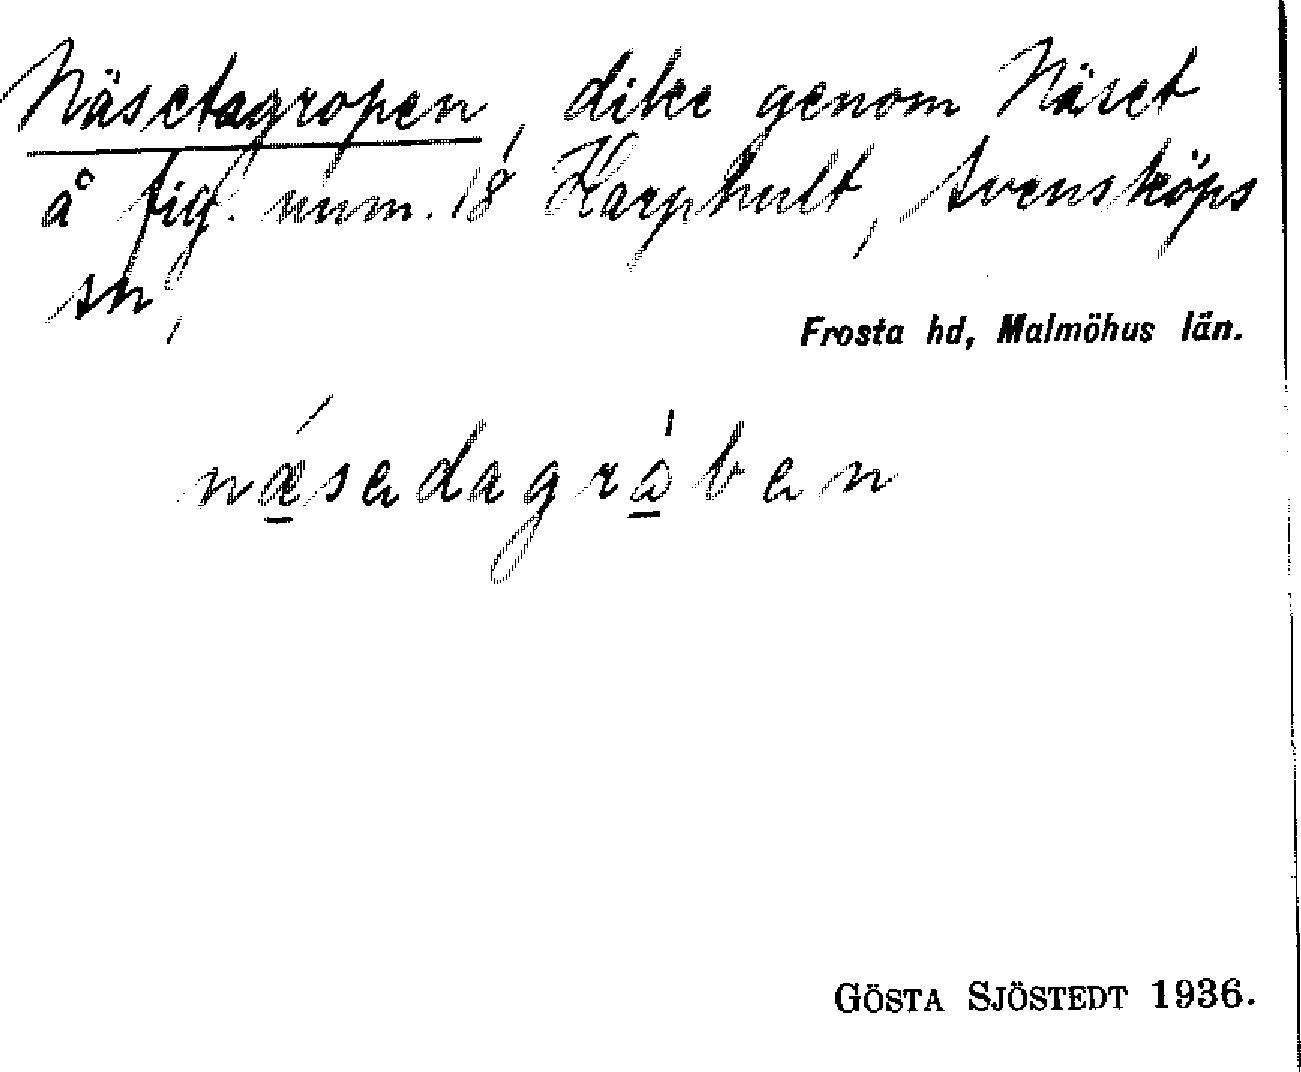 Näsetagropen, dike genom Näset
å fig. num. 18 Karphult, Svensköps
sn,
Frosta hd, Malmöhus län.
næsedagråben
GÖSTA SJÖSTEDT 1936.